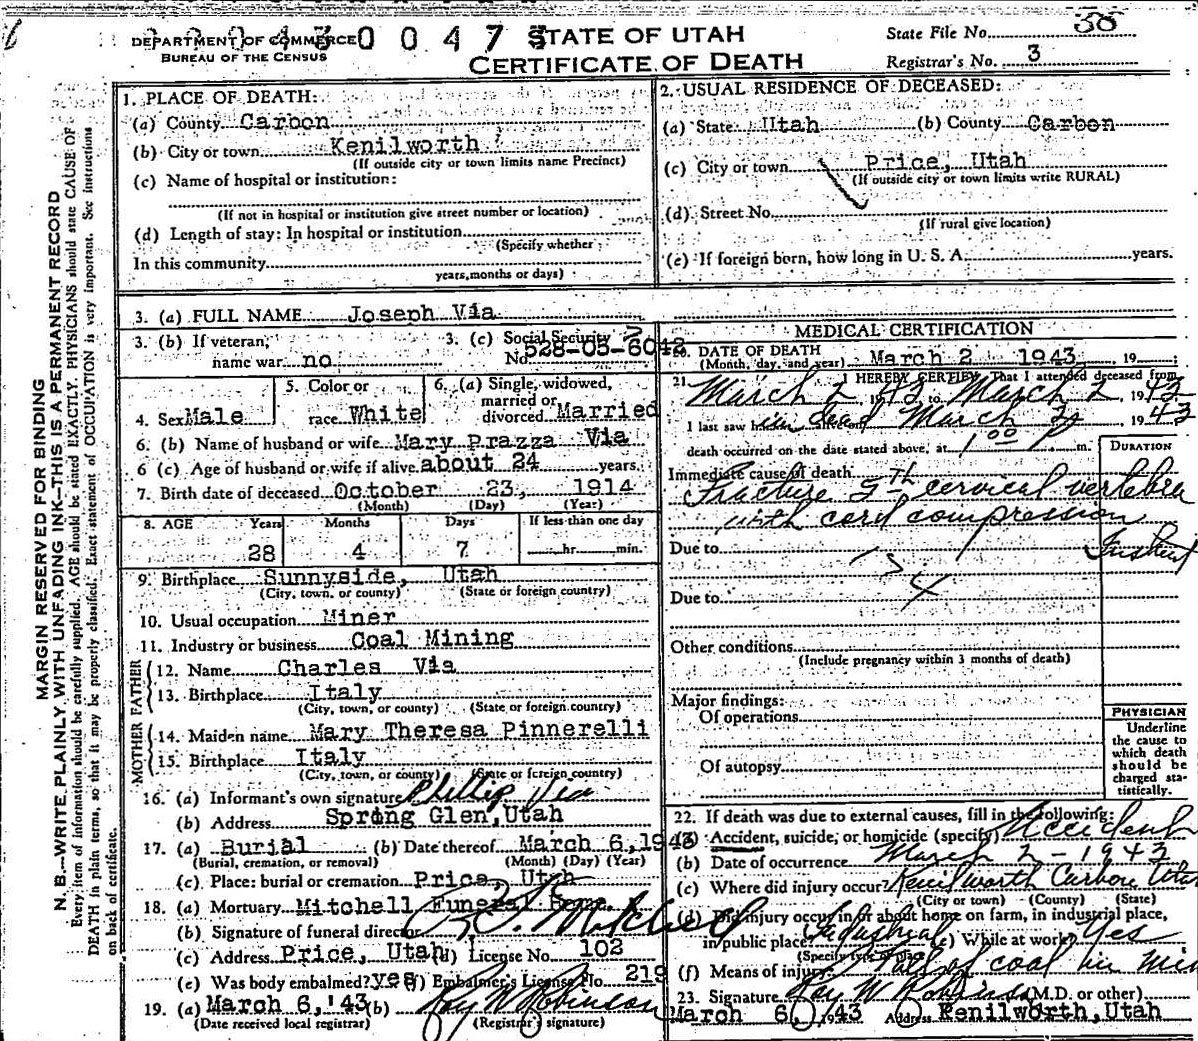 DEPARTMENT OF COMMERCE
BUREAU OF THE CENSUS
0 0 4 7
STATE OF UTAH
CERTIFICATE OF DEATH
State File No. 38
Registrar's No. 3
MARGIN RESERVED FOR BINDING
N. B.—WRITE PLAINLY WITH UNFADING INK—THIS IS A PERMANENT RECORD
Every item of information should be carefully supplied. AGE should be stated EXACTLY. PHYSICIANS should state CAUSE OF
DEATH in plain terms, so that it may be properly classified. Exact statement of OCCUPATION is very important. See instructions
on back of certificate.
1. PLACE OF DEATH:
(a) County Carbon
(b) City or town Kenilworth
(If outside city or town limits name Precinct)
(c) Name of hospital or institution:
(If not in hospital or institution give street number or location)
(d) Length of stay: In hospital or institution
(Specify whether
In this community
years, months or days)
2. USUAL RESIDENCE OF DECEASED:
(a) State Utah (b) County Carbon
(c) City or town Price, Utah
(If outside city or town limits write RURAL)
(d) Street No.
(If rural give location)
(e) If foreign born, how long in U. S. A. years.
3. (a) FULL NAME Joseph Via
3. (b) If veteran,
name war no
3. (c) Social Security
No. 528-05-6042
4. Sex Male
5. Color or
race White
6. (a) Single, widowed,
married or
divorced Married
6. (b) Name of husband or wife Mary Prazza Via
6 (c) Age of husband or wife if alive about 24 years.
7. Birth date of deceased October 23, 1914
(Month) (Day) (Year)
8. AGE Years Months Days If less than one day
28 4 7 hr. min.
9. Birthplace Sunnyside, Utah
(City, town, or county) (State or foreign country)
10. Usual occupation Miner
11. Industry or business Coal Mining
FATHER
12. Name Charles Via
13. Birthplace Italy
(City, town, or county) (State or foreign country)
MOTHER
14. Maiden name Mary Theresa Pinnerelli
15. Birthplace Italy
(City, town, or county) (State or foreign country)
16. (a) Informant's own signature Phillip Via
(b) Address Spring Glen, Utah
17. (a) Burial (b) Date thereof March 6, 1943
(Burial, cremation, or removal) (Month) (Day) (Year)
(c) Place: burial or cremation Price, Utah
18. (a) Mortuary Mitchell Funeral Home
(b) Signature of funeral director Mitchell
(c) Address Price, Utah (d) License No. 102
(e) Was body embalmed? yes (f) Embalmer's License No 219
19. (a) March 6, '43 (b) Roy W Robinson
(Date received local registrar) (Registrar's signature)
MEDICAL CERTIFICATION
20. DATE OF DEATH
(Month, day, and year) March 2 1943, 19
21. I HEREBY CERTIFY That I attended deceased from
March 2, 1943 to March 2, 1943
I last saw him dead March 2, 1943
death occurred on the date stated above, at 1 00 P m.
DURATION
Immediate cause of death
Fracture 5th cervical vertebra
with cord compression
Due to Instant
Due to
Other conditions
(Include pregnancy within 3 months of death)
Major findings:
Of operations
Of autopsy
PHYSICIAN
Underline
the cause to
which death
should be
charged sta-
tistically.
22. If death was due to external causes, fill in the following:
(a) Accident, suicide, or homicide (specify) Accident
(b) Date of occurrence March 2 - 1943
(c) Where did injury occur? Kenilworth Carbon Utah
(City or town) (County) (State)
(d) Did injury occur in or about home on farm, in industrial place,
in public place? Industrial (e) While at work? Yes
(Specify type of place)
(f) Means of injury Fall of coal in mine
23. Signature Roy W Robinson (M.D. or other)
March 6, 1943 Address Kenilworth, Utah